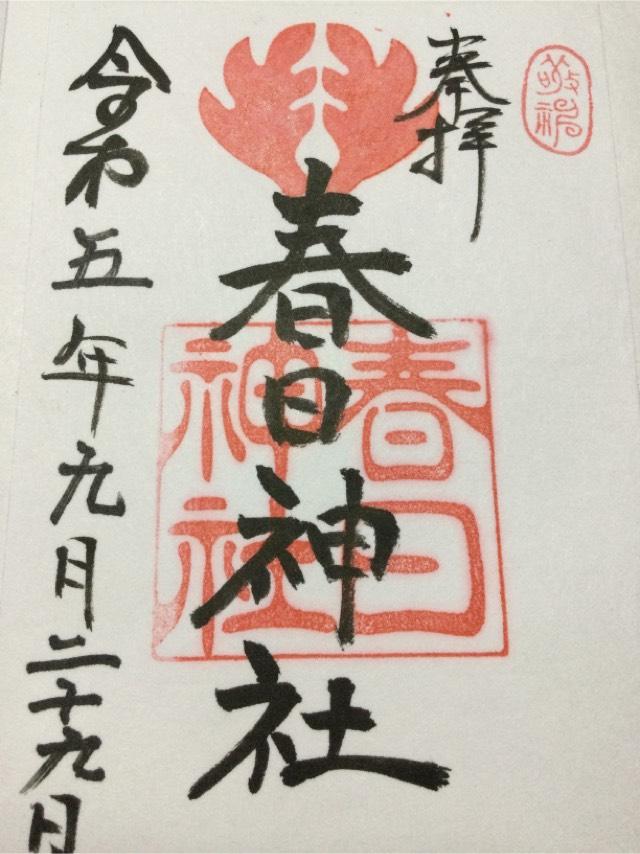 敬神
奉拝
春日神社
春日神社
令和五年九月二十九日